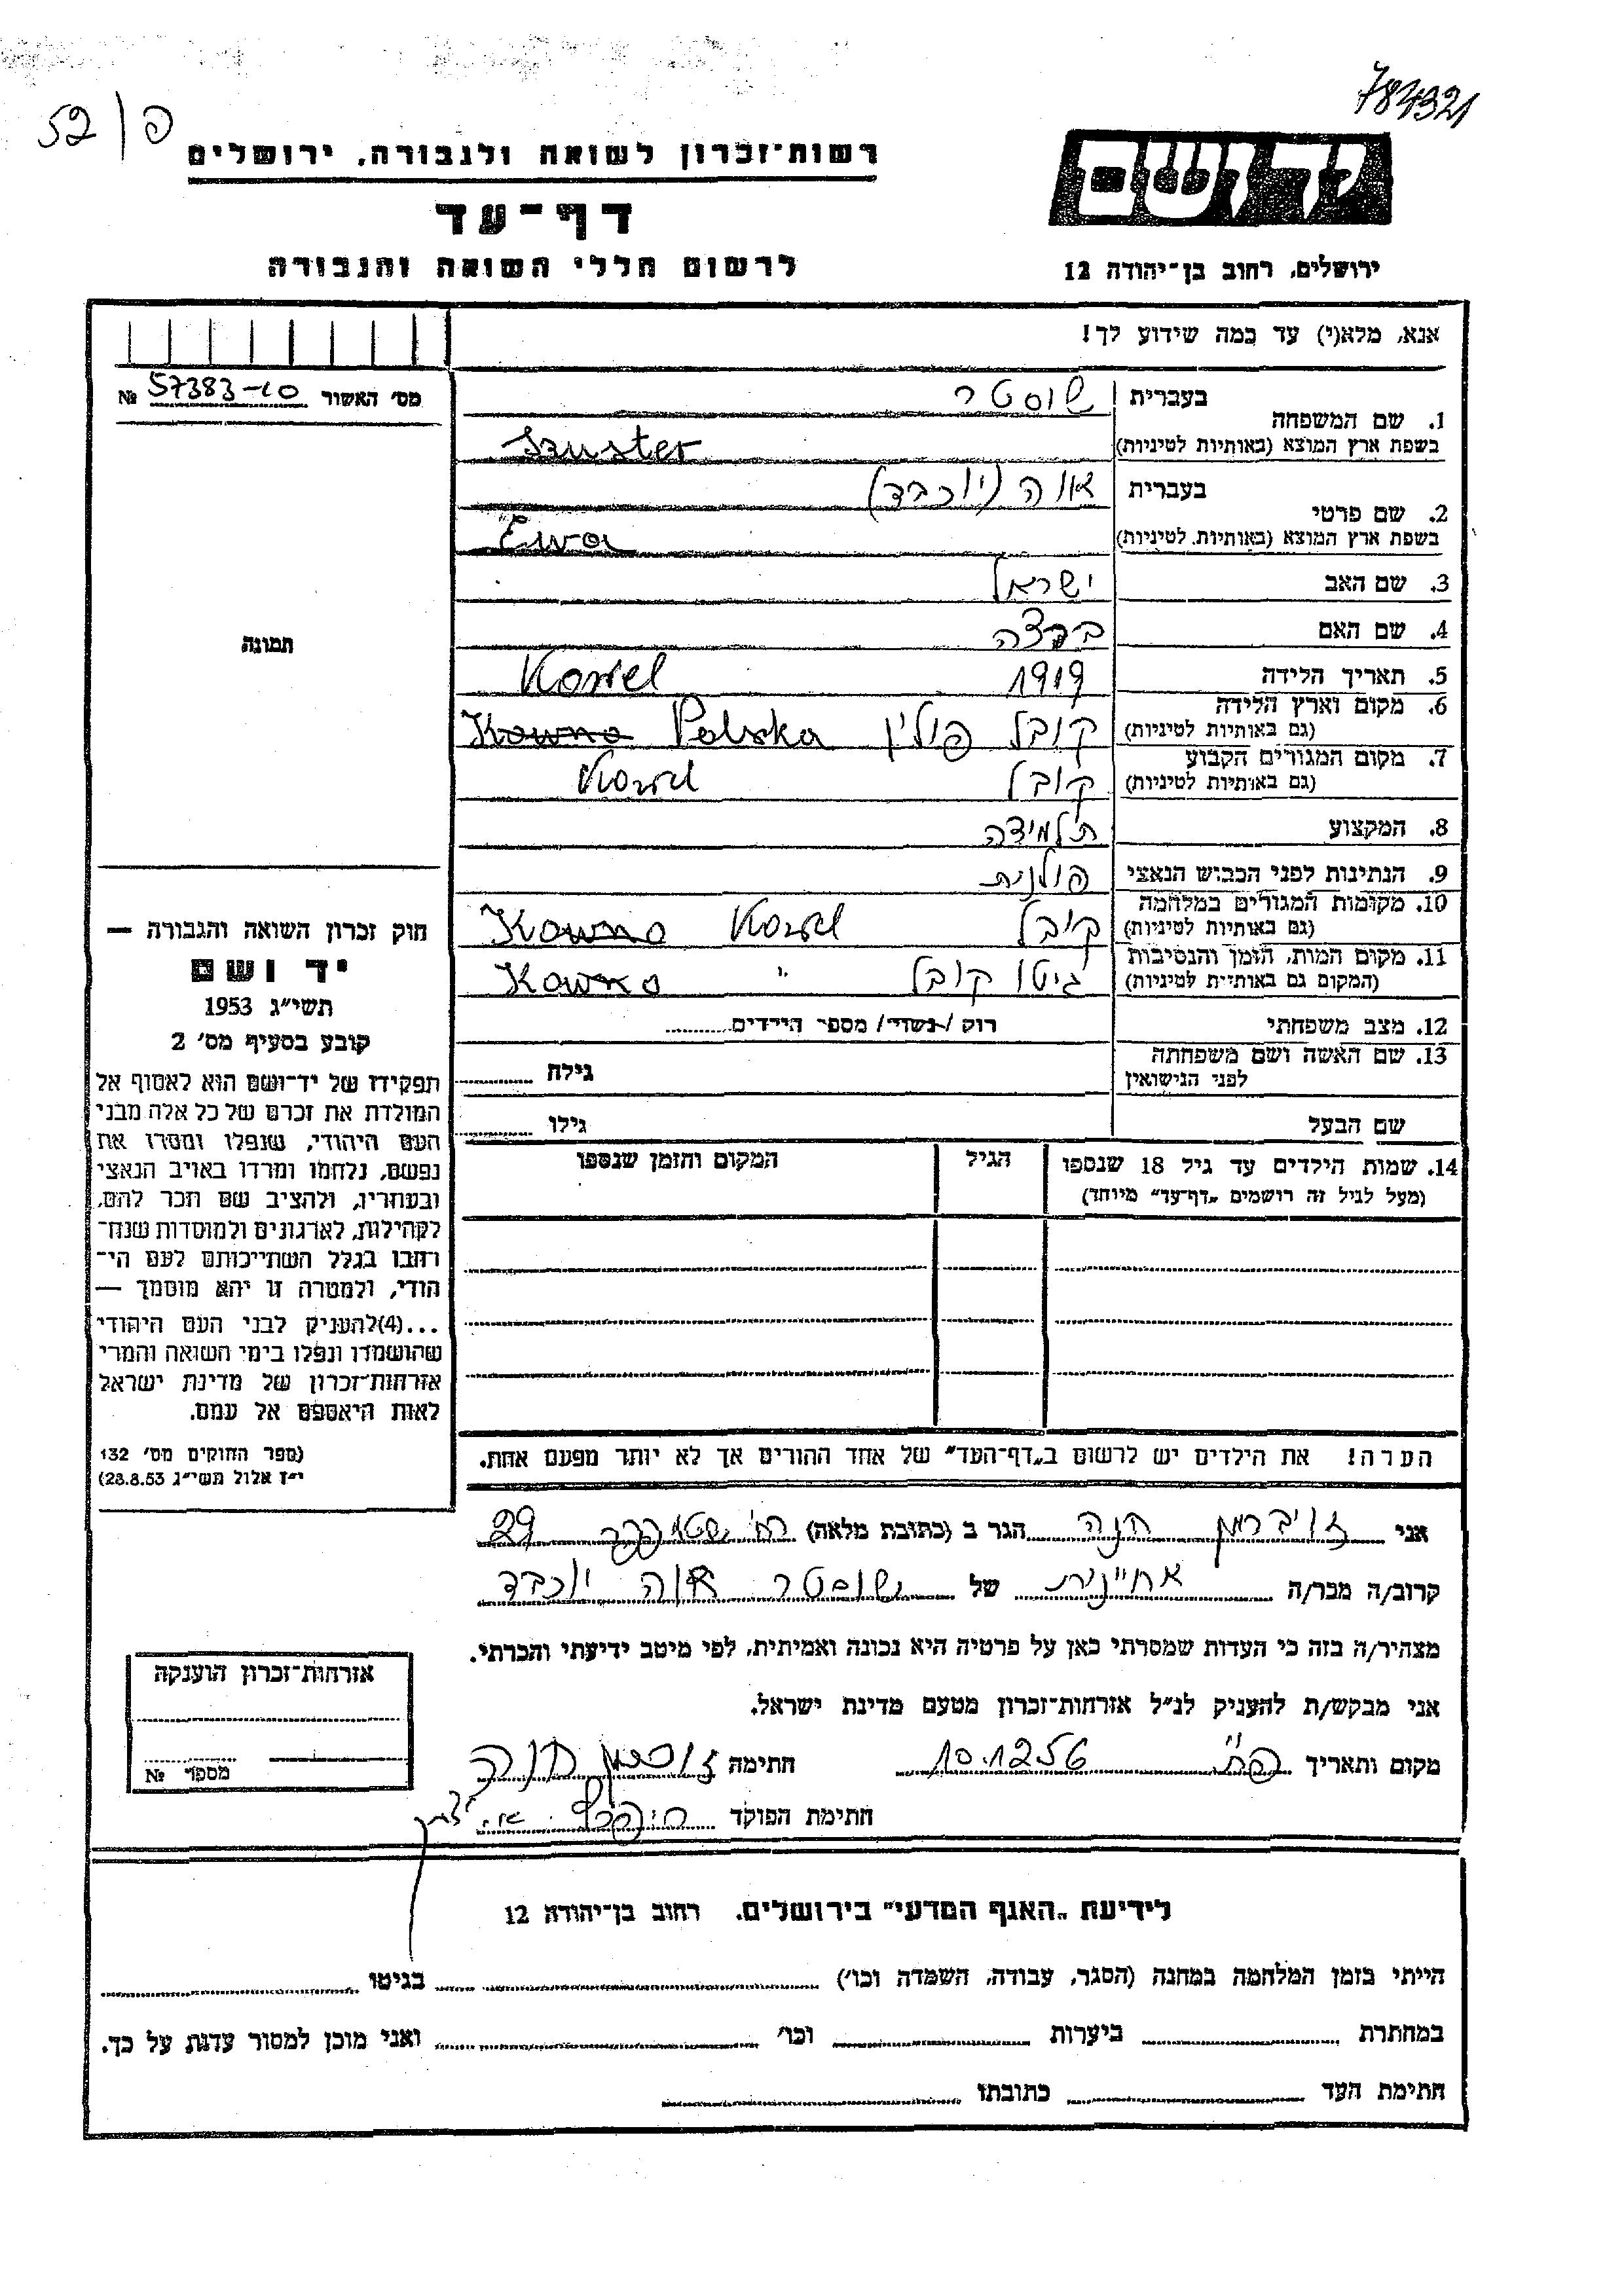 784321
52 | פ
יד ושם
רשות־זכרון לשואה ולגבורה, ירושלים
דף־עד
לרשום חללי השואה והגבורה
ירושלים, רחוב בן־יהודה 12
אנא, מלא(י) עד כמה שידוע לך!
מס׳ האשור 57383-10 №
1. שם המשפחה
בעברית שוסטר
בשפת ארץ המוצא (באותיות לטיניות) Szuster
2. שם פרטי
בעברית אוה (יוכבד)
בשפת ארץ המוצא (באותיות לטיניות) Ewa
3. שם האב ישראל
4. שם האם
5. תאריך הלידה 1919 Kowel
6. מקום וארץ הלידה
(גם באותיות לטיניות) קובל פולין Polska Kowno
7. מקום המגורים הקבוע
(גם באותיות לטיניות) קובל Kowel
8. המקצוע תלמידה
9. הנתינות לפני הכבוש הנאצי פולנית
10. מקומות המגורים במלחמה
(גם באותיות לטיניות) קובל Kowel Kowno
11. מקום המות, הזמן והנסיבות
(המקום גם באותיות לטיניות) גיטו קובל " Kowno
12. מצב משפחתי רוק /נשוי/ מספר הילדים
13. שם האשה ושם משפחתה
לפני הנישואין גילה
שם הבעל גילו
14. שמות הילדים עד גיל 18 שנספו
(מעל לגיל זה רושמים „דף־עד" מיוחד)
הגיל
המקום והזמן שנספו
הערה! את הילדים יש לרשום ב„דף־העד" של אחד ההורים אך לא יותר מפעם אחת.
תמונה
חוק זכרון השואה והגבורה —
יד ושם
תשי״ג 1953
קובע בסעיף מס׳ 2
תפקידו של יד־ושם הוא לאסוף אל
המולדת את זכרם של כל אלה מבני
העם היהודי, שנפלו ומסרו את
נפשם, נלחמו ומרדו באויב הנאצי
ובעוזריו, ולהציב שם וזכר להם,
לקהילות, לארגונים ולמוסדות שנח־
רבו בגלל השתייכותם לעם הי־
הודי, ולמטרה זו יהא מוסמך —
...(4)להעניק לבני העם היהודי
שהושמדו ונפלו בימי השואה והמרי
אזרחות־זכרון של מדינת ישראל
לאות היאספם אל עמם.
(ספר החוקים מס׳ 132
י״ז אלול תשי״ג 28.8.53)
אני זויברמן חנה הגר ב (כתובת מלאה) רח׳ 29
קרוב/ה מכר/ה אחיינית של שוסטר אוה יוכבד
מצהיר/ה בזה כי העדות שמסרתי כאן על פרטיה היא נכונה ואמיתית, לפי מיטב ידיעתי והכרתי.
אני מבקש/ת להעניק לנ״ל אזרחות־זכרון מטעם מדינת ישראל.
מקום ותאריך 10.12.56 חתימה חנה
חתימת הפוקד
אזרחות־זכרון הוענקה
מספר №
לידיעת „האגף המדעי" בירושלים. רחוב בן־יהודה 12
הייתי בזמן המלחמה במחנה (הסגר, עבודה, השמדה וכו׳) בגיטו
במחתרת ביערות וכו׳ ואני מוכן למסור עדות על כך.
חתימת העד כתובתו